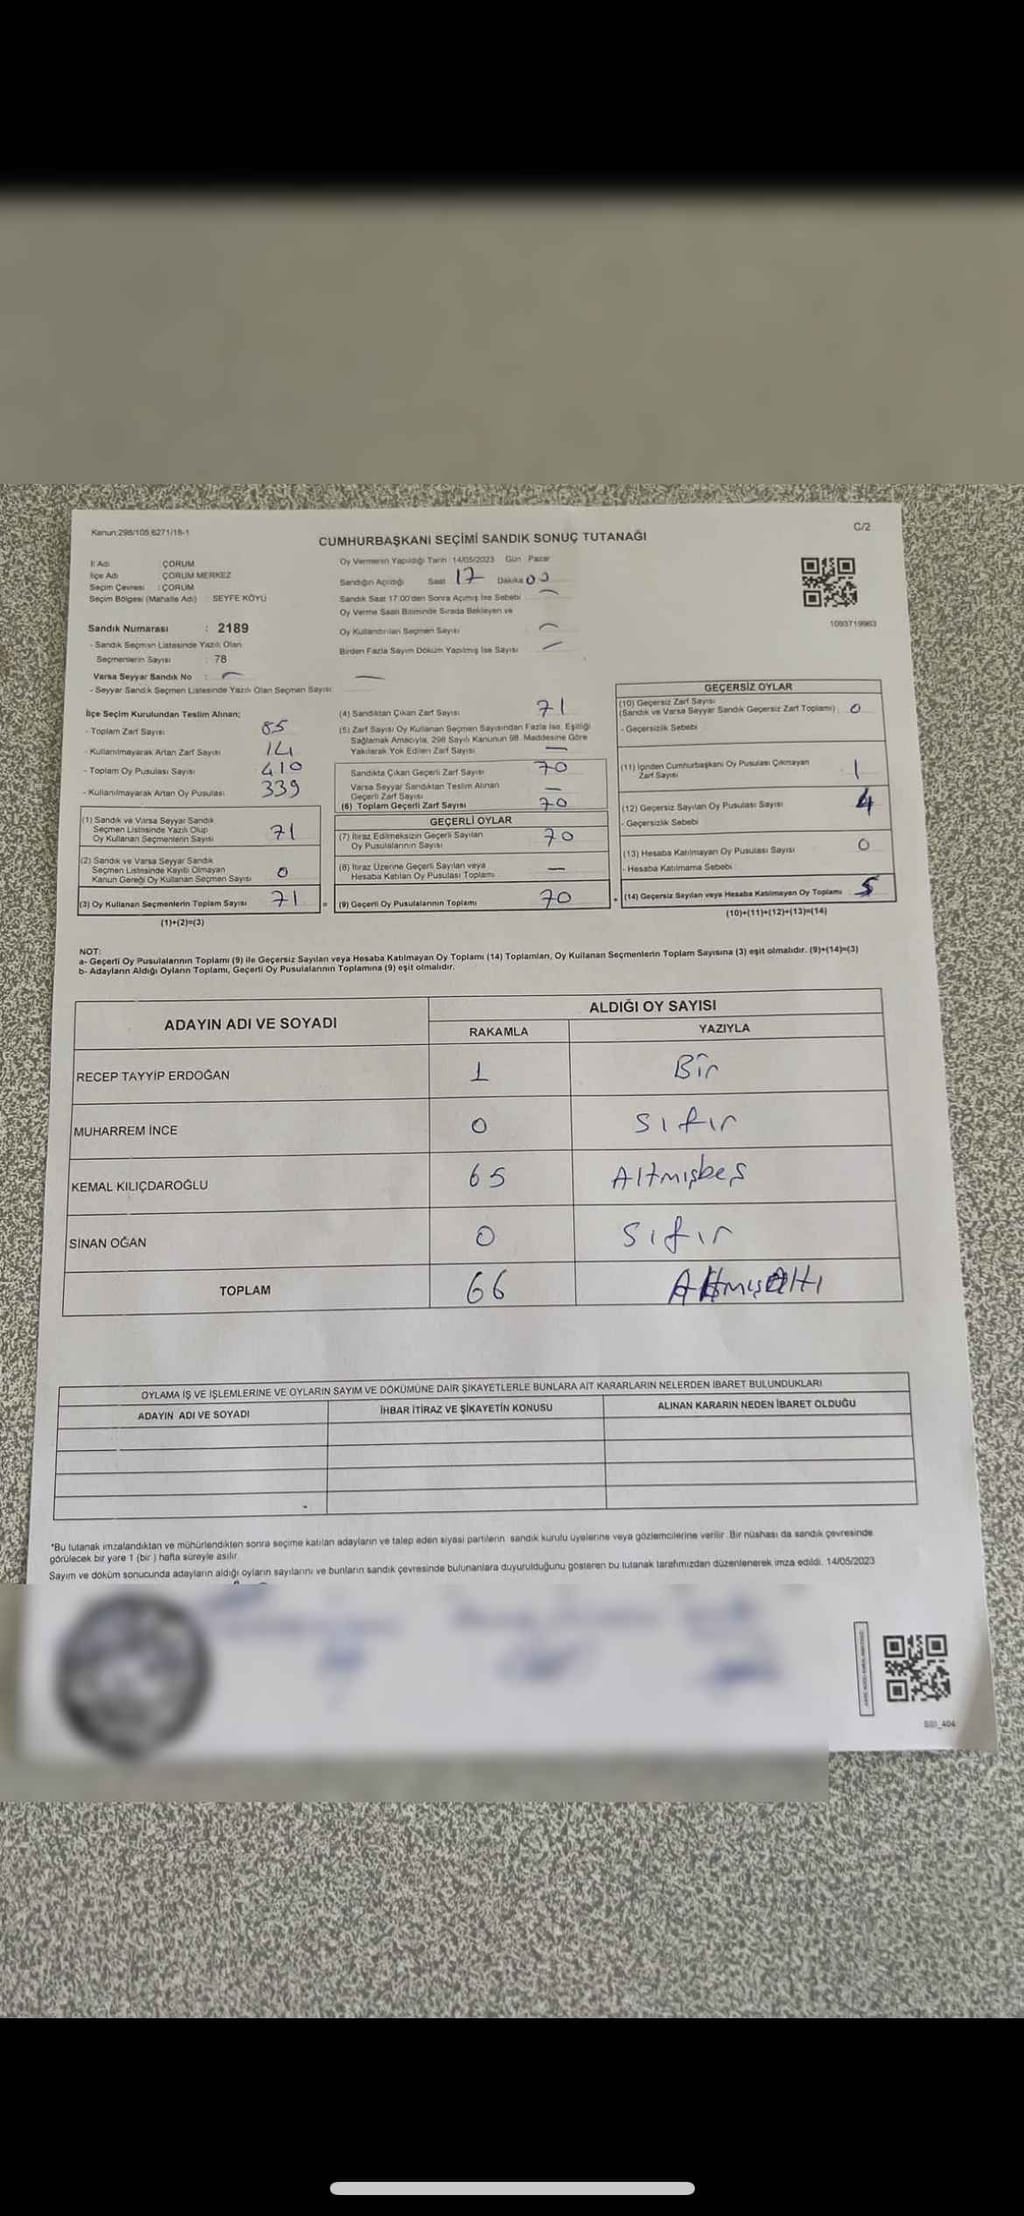 Kanun:298/105,6271/16-1
C/2
CUMHURBAŞKANI SEÇİMİ SANDIK SONUÇ TUTANAĞI
İl Adı ÇORUM
İlçe Adı ÇORUM MERKEZ
Seçim Çevresi : ÇORUM
Seçim Bölgesi (Mahalle Adı) SEYFE KÖYÜ
Sandık Numarası : 2189
- Sandık Seçmen Listesinde Yazılı Olan
Seçmenlerin Sayısı : 78
Varsa Seyyar Sandık No :
- Seyyar Sandık Seçmen Listesinde Yazılı Olan Seçmen Sayısı
Oy Vermenin Yapıldığı Tarih : 14/05/2023 Gün : Pazar
Sandığın Açıldığı Saat 17 Dakika 00
Sandık Saat 17:00'den Sonra Açılmış İse Sebebi
Oy Verme Saati Bitiminde Sırada Bekleyen ve
Oy Kullandırılan Seçmen Sayısı
Birden Fazla Sayım Döküm Yapılmış İse Sayısı
1093719963
İlçe Seçim Kurulundan Teslim Alınan;
- Toplam Zarf Sayısı 85
- Kullanılmayarak Artan Zarf Sayısı 14
- Toplam Oy Pusulası Sayısı 410
- Kullanılmayarak Artan Oy Pusulası 339
(1) Sandık ve Varsa Seyyar Sandık
Seçmen Listesinde Yazılı Olup
Oy Kullanan Seçmenlerin Sayısı 71
(2) Sandık ve Varsa Seyyar Sandık
Seçmen Listesinde Kayıtlı Olmayan
Kanun Gereği Oy Kullanan Seçmen Sayısı 0
(3) Oy Kullanan Seçmenlerin Toplam Sayısı 71
(1)+(2)=(3)
(4) Sandıktan Çıkan Zarf Sayısı 71
(5) Zarf Sayısı Oy Kullanan Seçmen Sayısından Fazla İse, Eşitliği
Sağlamak Amacıyla, 298 Sayılı Kanunun 98. Maddesine Göre
Yakılarak Yok Edilen Zarf Sayısı —
Sandıkta Çıkan Geçerli Zarf Sayısı 70
Varsa Seyyar Sandıktan Teslim Alınan
Geçerli Zarf Sayısı —
(6) Toplam Geçerli Zarf Sayısı 70
GEÇERLİ OYLAR
(7) İtiraz Edilmeksizin Geçerli Sayılan
Oy Pusulalarının Sayısı 70
(8) İtiraz Üzerine Geçerli Sayılan veya
Hesaba Katılan Oy Pusulası Toplamı —
= (9) Geçerli Oy Pusulalarının Toplamı 70
GEÇERSİZ OYLAR
(10) Geçersiz Zarf Sayısı
(Sandık ve Varsa Seyyar Sandık Geçersiz Zarf Toplamı) 0
- Geçersizlik Sebebi
(11) İçinden Cumhurbaşkanı Oy Pusulası Çıkmayan
Zarf Sayısı 1
(12) Geçersiz Sayılan Oy Pusulası Sayısı 4
- Geçersizlik Sebebi
(13) Hesaba Katılmayan Oy Pusulası Sayısı 0
- Hesaba Katılmama Sebebi
+ (14) Geçersiz Sayılan veya Hesaba Katılmayan Oy Toplamı 5
(10)+(11)+(12)+(13)=(14)
NOT:
a- Geçerli Oy Pusulalarının Toplamı (9) ile Geçersiz Sayılan veya Hesaba Katılmayan Oy Toplamı (14) Toplamları, Oy Kullanan Seçmenlerin Toplam Sayısına (3) eşit olmalıdır. (9)+(14)=(3)
b- Adayların Aldığı Oyların Toplamı, Geçerli Oy Pusulalarının Toplamına (9) eşit olmalıdır.
ADAYIN ADI VE SOYADI
ALDIĞI OY SAYISI
RAKAMLA YAZIYLA
RECEP TAYYİP ERDOĞAN 1 Bir
MUHARREM İNCE 0 sıfır
KEMAL KILIÇDAROĞLU 65 Altmışbeş
SİNAN OĞAN 0 sıfır
TOPLAM 66 Altmışaltı
OYLAMA İŞ VE İŞLEMLERİNE VE OYLARIN SAYIM VE DÖKÜMÜNE DAİR ŞİKAYETLERLE BUNLARA AİT KARARLARIN NELERDEN İBARET BULUNDUKLARI
ADAYIN ADI VE SOYADI İHBAR İTİRAZ VE ŞİKAYETİN KONUSU ALINAN KARARIN NEDEN İBARET OLDUĞU
*Bu tutanak imzalandıktan ve mühürlendikten sonra seçime katılan adayların ve talep eden siyasi partilerin sandık kurulu üyelerine veya gözlemcilerine verilir. Bir nüshası da sandık çevresinde
görülecek bir yere 1 (bir) hafta süreyle asılır.
Sayım ve döküm sonucunda adayların aldığı oyların sayılarını ve bunların sandık çevresinde bulunanlara duyurulduğunu gösteren bu tutanak tarafımızdan düzenlenerek imza edildi. 14/05/2023